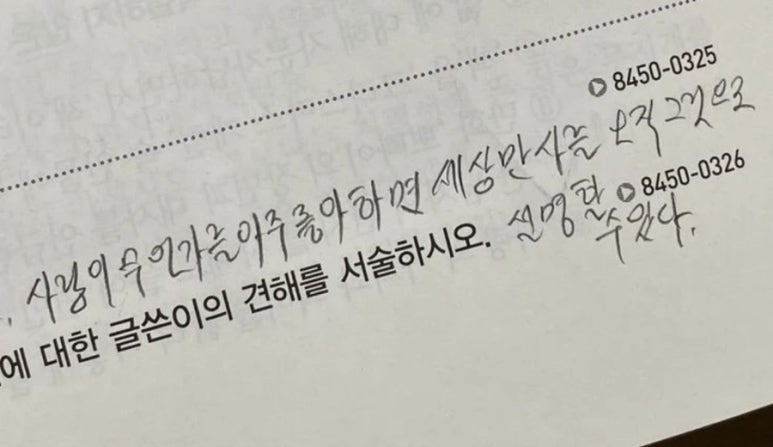 8450-0325
사람이 무언가를 아주 좋아하면 세상만사를 오직 그것으로
8450-0326
설명할
수 있다.
에 대한 글쓴이의 견해를 서술하시오.